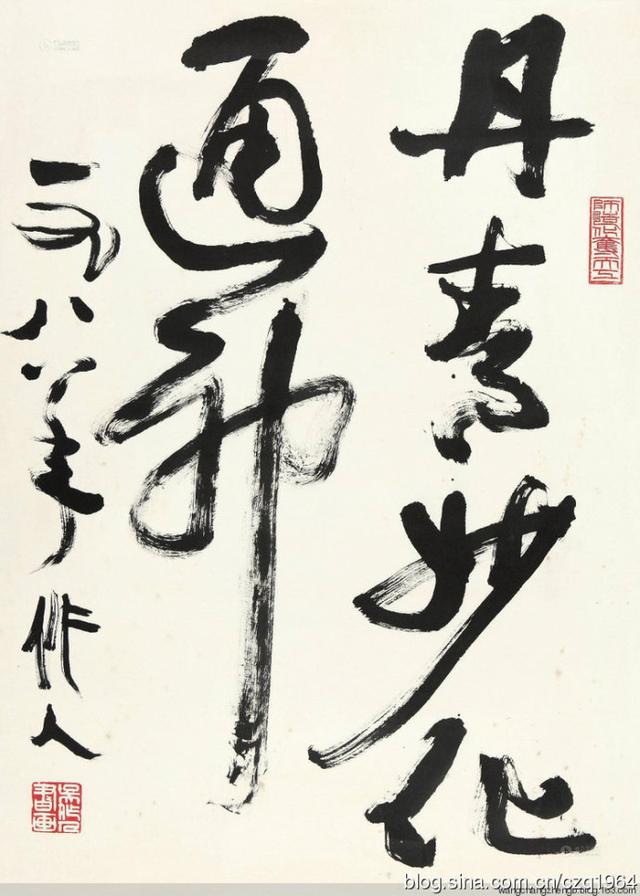 丹青妙化
通神
一九八八年作人
吳作人書畫
blog.sina.com.cn/czq1964